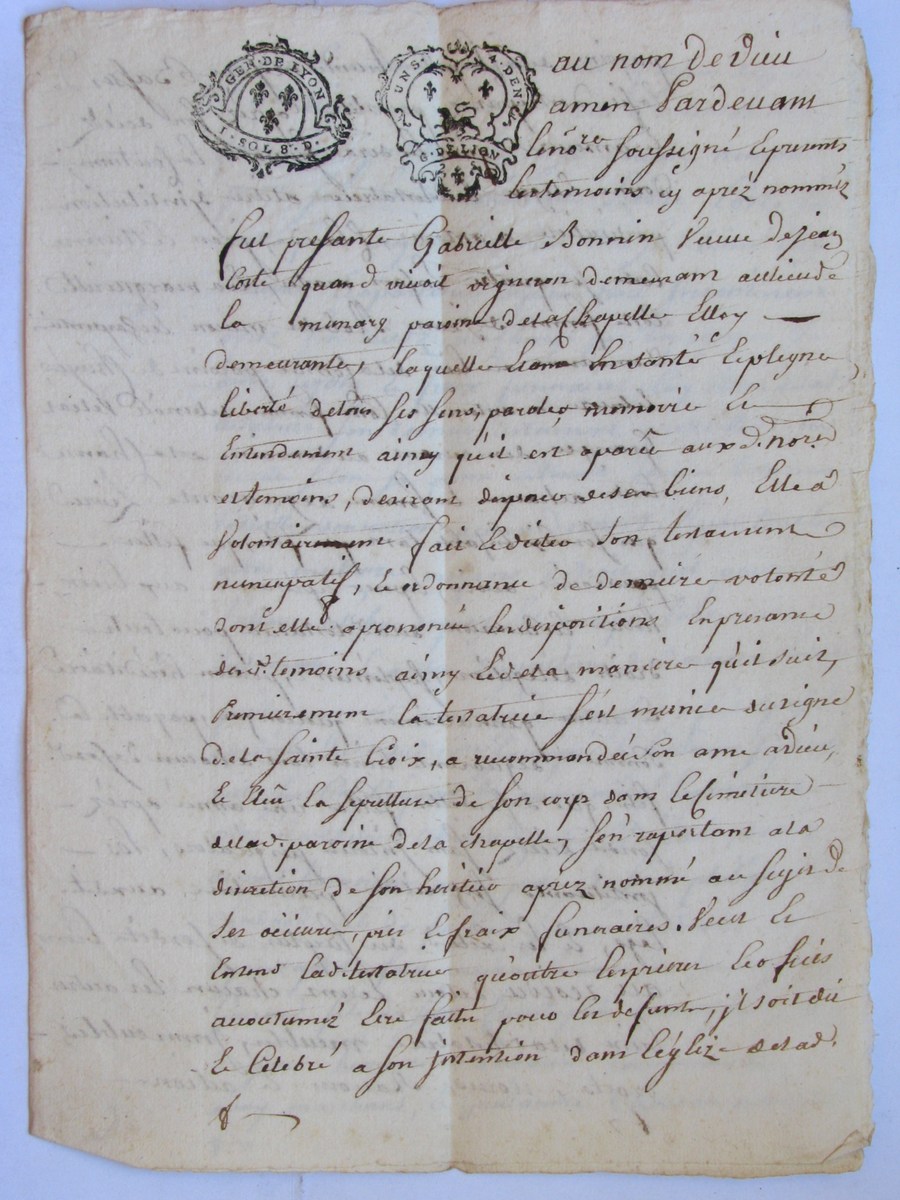 GEN · DE LYON
1 · SOL 8 · D ·
UN S · 4 · DEN
G · DE LION
au nom de dieu
amen Pardevant
le no.re soussigné et presents
les temoins cy apréz nommez
fut presante Gabrielle Bonnin veuve de jean
Coste quand vivoit vigneron demeurant au lieu de
la munary paroisse de la Chapelle Elle y
demeurante, laquelle etant En santé et pleyne
liberté de tous ses sens, paroles, memoire et
Entendement ainsy qu'il est aparû aux d. no.re
et temoins, desirant disposer de ses biens, Elle a
volontairement fait et dicter son testament
nuncupatif, et ordonnance de derniére volonté
dont elle a prononcée les dispositions En presance
desd. temoins ainsy et de la maniére qu'il suit,
Premierement la testatrice s'est munie du signe
de la Sainte Croix, a recommandée son ame a dieu,
et Elû la sepulture de son corps dans le Cimetiére
de lad. paroisse de la chapelle, s'en raportant a la
discretion de son heritier apréz nommé au sujet de
ses obits et fraix funeraires. Veut et
Entend lad. testatrice qu'outre les priéres et
accoutuméz etre faits pour les défunts, j'l soit dit
et Célébré a son jntention dans l'églize de lad.